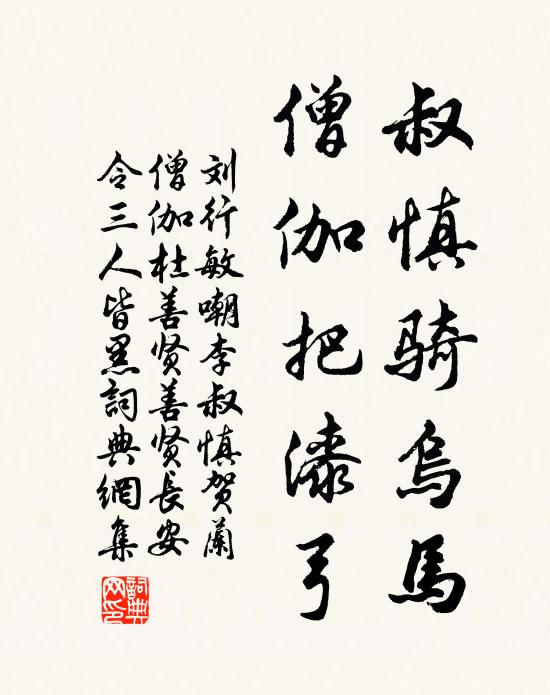 叔慎骑乌馬
僧伽把漆弓
刘行敏嘲李叔慎贺蘭
僧伽杜善贤善贤長安
令三人皆黑詞典網集
詞典
网印